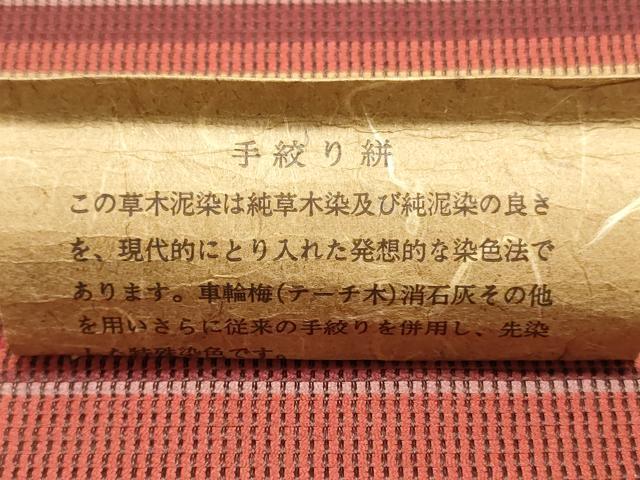 手絞り絣
この草木泥染は純草木染及び純泥染の良さ
を、現代的にとり入れた発想的な染色法で
あります。車輪梅(テーチ木)消石灰その他
を用いさらに従来の手絞りを併用し、先染
した特殊染色です。